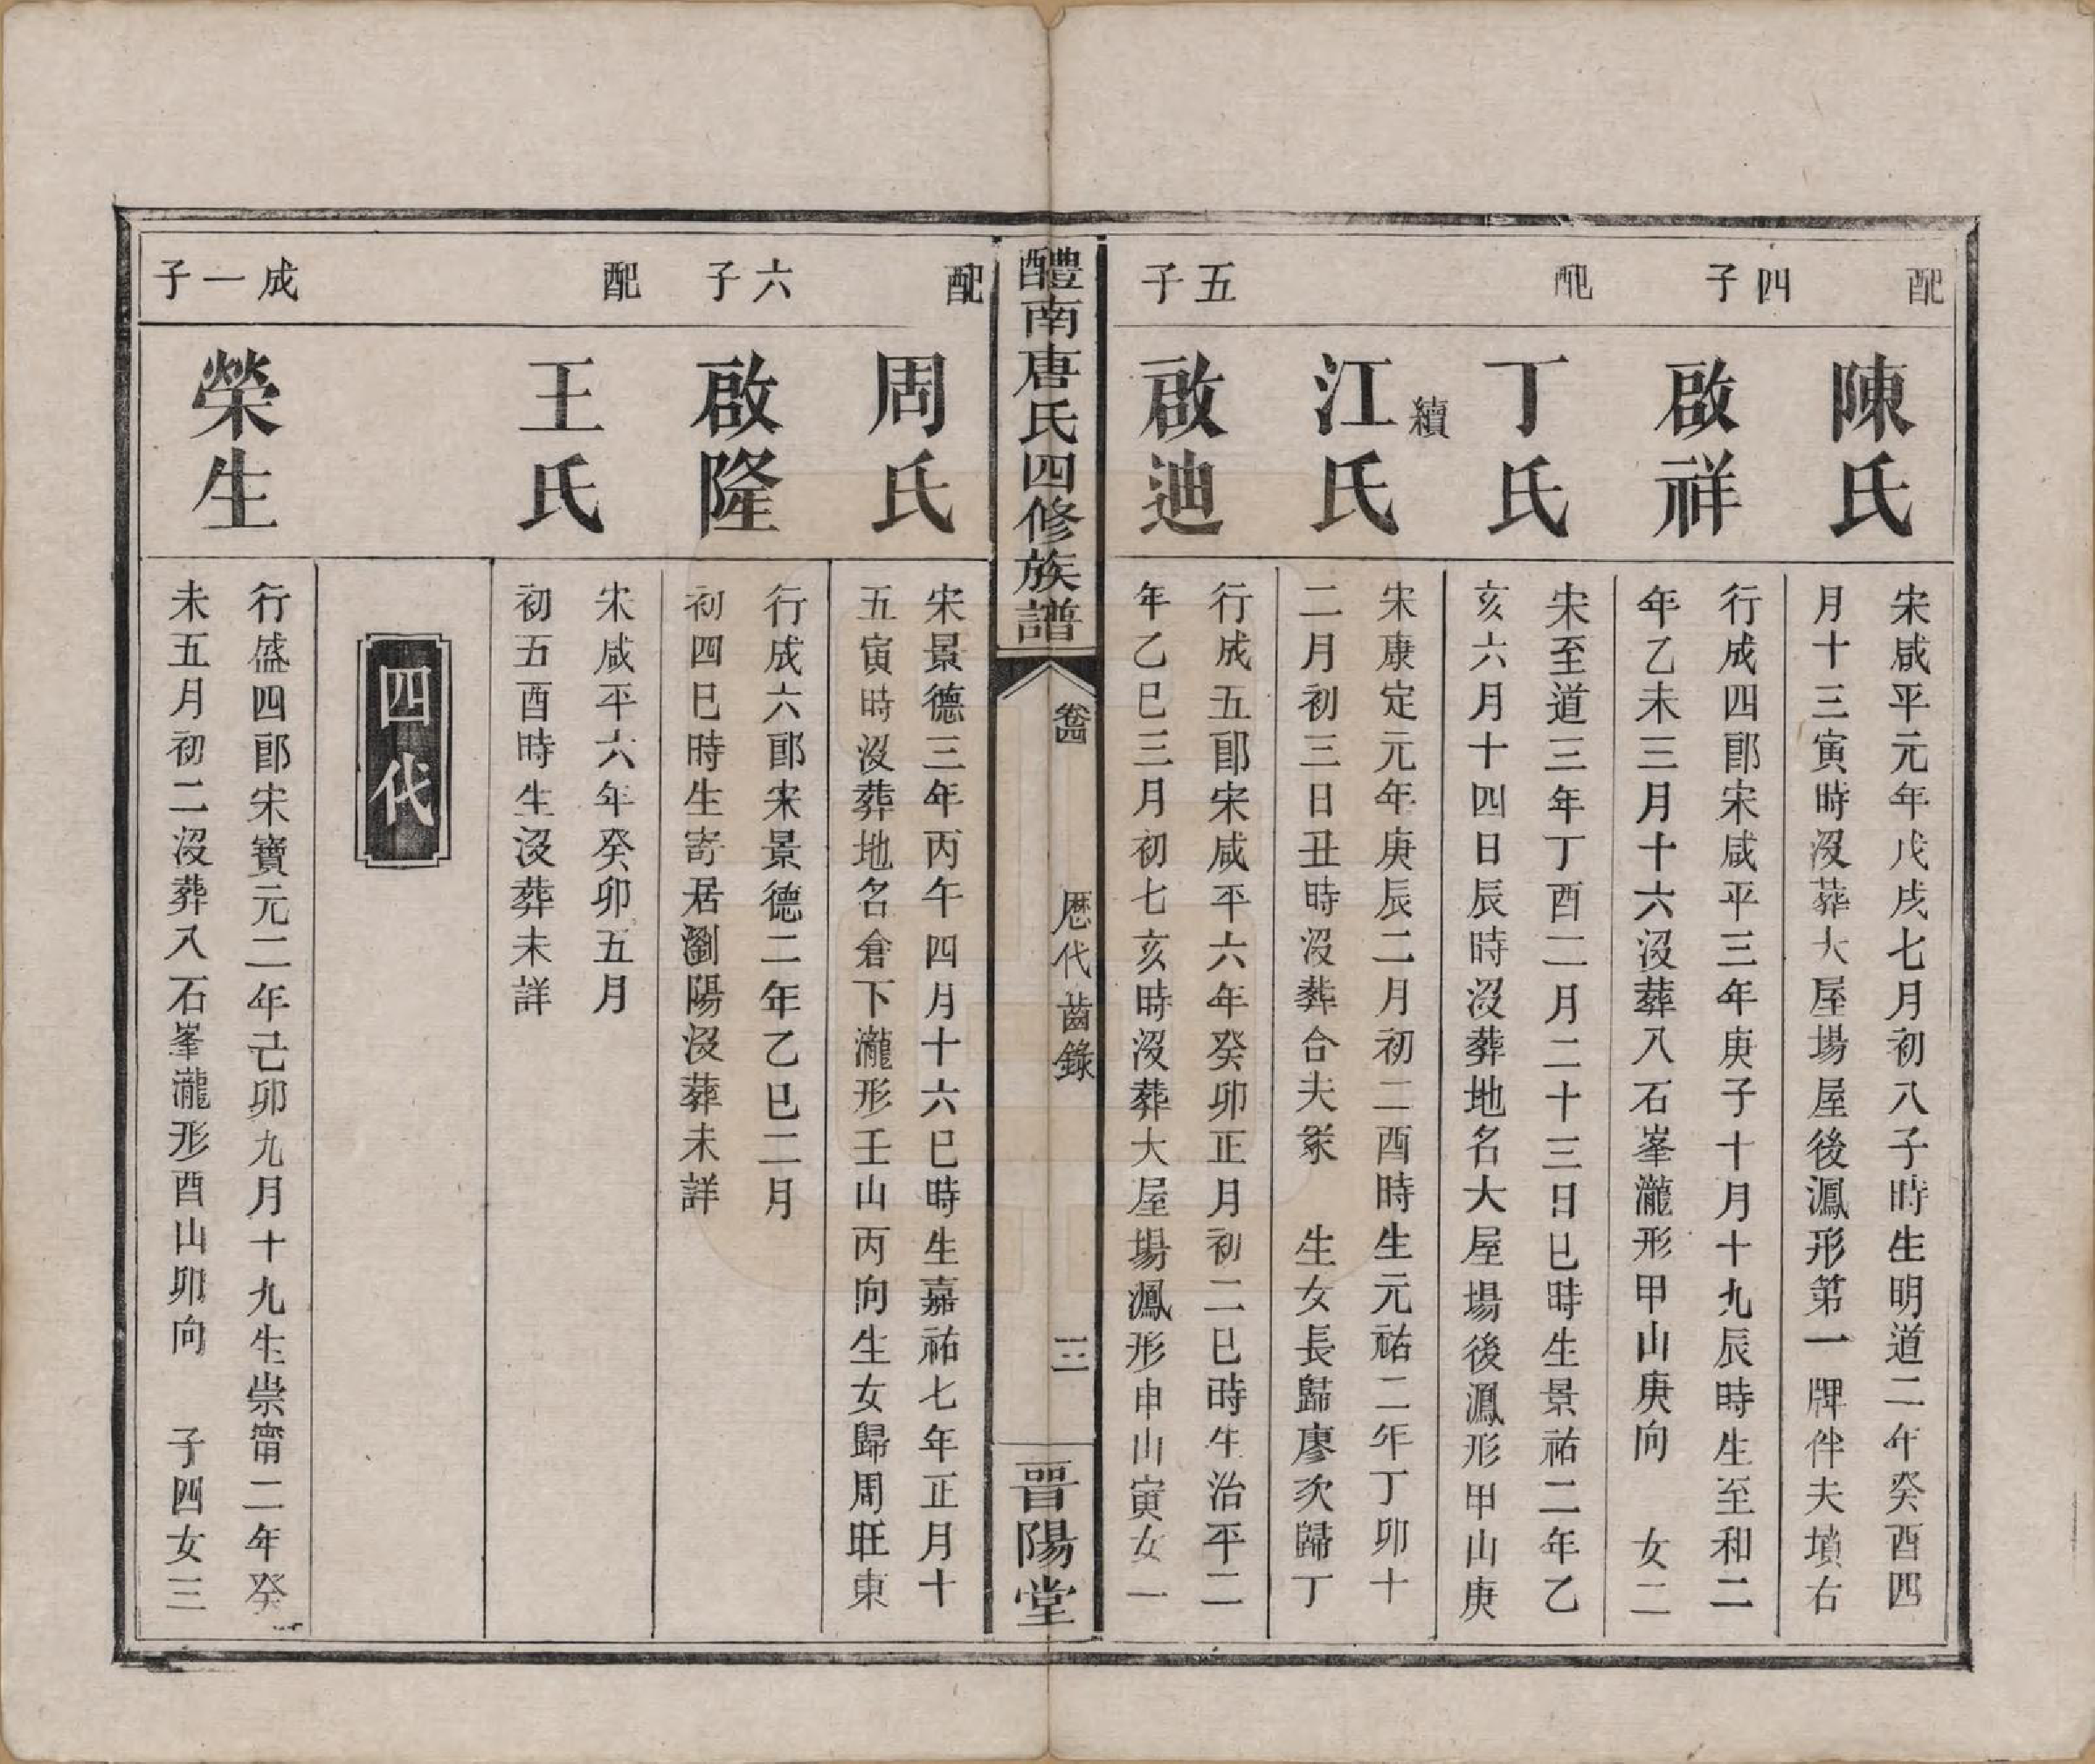 配
陳氏
宋咸平元年戊戌七月初八子時生明道二年癸酉四
月十三寅時沒葬大屋場屋後鳳形第一牌伴夫墳右
四子
啟祥
行成四郎宋咸平三年庚子十月十九辰時生至和二
年乙未三月十六沒葬八石峯瀧形甲山庚向　女二
配
丁氏
宋至道三年丁酉二月二十三日巳時生景祐二年乙
亥六月十四日辰時沒葬地名大屋場後鳳形甲山庚
續
江氏
宋康定元年庚辰二月初二酉時生元祐二年丁卯十
二月初三日丑時沒葬合夫冢　生女長歸廖次歸丁
五子
啟迪
行成五郎宋咸平六年癸卯正月初二巳時生治平二
年乙巳三月初七亥時沒葬大屋場鳳形申山寅女一
醴南唐氏四修族譜
卷四
歷代齒錄
三
晉陽堂
配
周氏
宋景德三年丙午四月十六巳時生嘉祐七年正月十
五寅時沒葬地名倉下瀧形壬山丙向生女歸周旺東
六子
啟隆
行成六郎宋景德二年乙巳二月
初四巳時生寄居瀏陽沒葬未詳
配
王氏
宋咸平六年癸卯五月
初五酉時生沒葬未詳
四代
成一子
榮生
行盛四郎宋寶元二年己卯九月十九生崇甯二年癸
未五月初二沒葬八石峯瀧形酉山卯向　子四女三